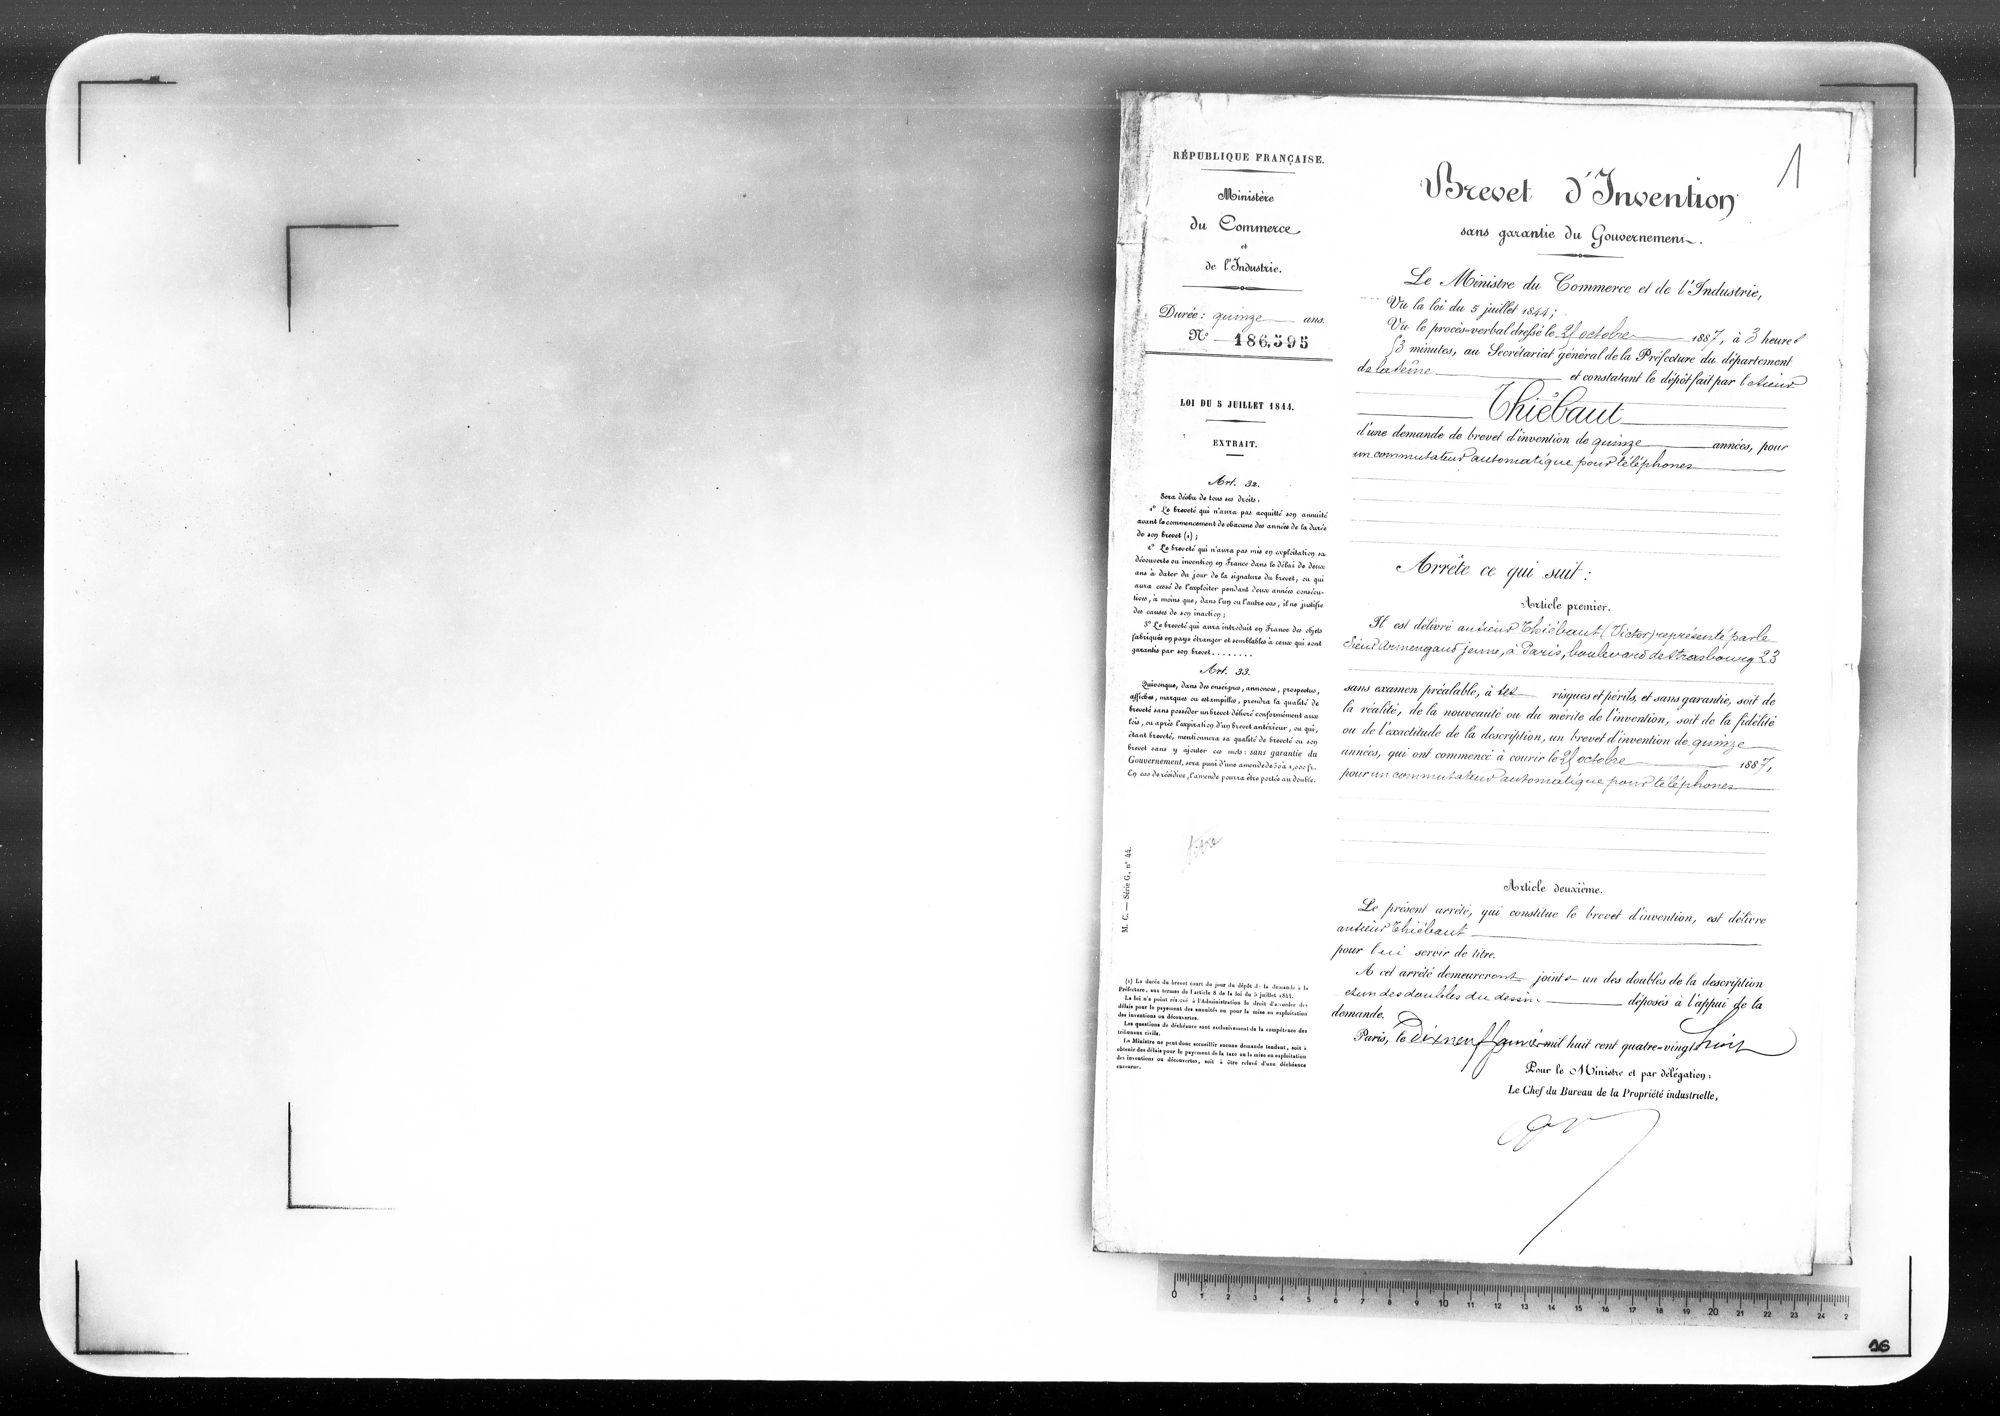 RÉPUBLIQUE FRANÇAISE.
Ministère
du Commerce
et
de l'Industrie.
Durée : quinze ans.
N° 186,595
LOI DU 5 JUILLET 1844.
EXTRAIT.
Art. 32.
Sera déchu de tous ses droits :
1° Le breveté qui n'aura pas acquitté son annuité
avant le commencement de chacune des années de la durée
de son brevet (1) ;
2° Le breveté qui n'aura pas mis en exploitation sa
découverte ou invention en France dans le délai de deux
ans à dater du jour de la signature du brevet, ou qui
aura cessé de l'exploiter pendant deux années consécu-
tives, à moins que, dans l'un ou l'autre cas, il ne justifie
des causes de son inaction ;
3° Le breveté qui aura introduit en France des objets
fabriqués en pays étranger et semblables à ceux qui sont
garantis par son brevet . . . . . . . .
Art. 33.
Quiconque, dans des enseignes, annonces, prospectus,
affiches, marques ou estampilles, prendra la qualité de
breveté sans posséder un brevet délivré conformément aux
lois, ou après l'expiration d'un brevet antérieur, ou qui,
étant breveté, mentionnera sa qualité de breveté ou son
brevet sans y ajouter ces mots : sans garantie du
Gouvernement, sera puni d'une amende de 50 à 1,000 fr.
En cas de récidive, l'amende pourra être portée au double.
M. C. — Série G, n° 44.
(1) La durée du brevet court du jour du dépôt de la demande à la
Préfecture, aux termes de l'article 8 de la loi du 5 juillet 1844.
La loi n'a point réservé à l'Administration le droit d'accorder des
délais pour le payement des annuités ou pour la mise en exploitation
des inventions ou découvertes.
Les questions de déchéance sont exclusivement de la compétence des
tribunaux civils.
Le Ministre ne peut donc accueillir aucune demande tendant, soit à
obtenir des délais pour le payement de la taxe ou la mise en exploitation
des inventions ou découvertes, soit à être relevé d'une déchéance
encourue.
1
Brevet d'Invention
sans garantie du Gouvernement.
Le Ministre du Commerce et de l'Industrie,
Vu la loi du 5 juillet 1844 ;
Vu le procès-verbal dressé le octobre 1887, à 3 heures
minutes, au Secrétariat général de la Préfecture du département
de la Seine et constatant le dépôt fait par le sieur
Thiébaut
d'une demande de brevet d'invention de quinze années, pour
un commutateur automatique pour téléphones
Arrête ce qui suit :
Article premier.
Il est délivré au sieur Thiébaut (Victor) représenté par le
Sieur Armengaud jeune, à Paris, boulevard de Strasbourg 23
sans examen préalable, à ses risques et périls, et sans garantie, soit de
la réalité, de la nouveauté ou du mérite de l'invention, soit de la fidélité
ou de l'exactitude de la description, un brevet d'invention de quinze
années, qui ont commencé à courir le octobre 1887,
pour un commutateur automatique pour téléphones
Article deuxième.
Le présent arrêté, qui constitue le brevet d'invention, est délivré
au sieur Thiébaut
pour lui servir de titre.
A cet arrêté demeureront joints un des doubles de la description
et un des doubles du dessin déposés à l'appui de la
demande.
Paris, le Dix neuf Janvier mil huit cent quatre-vingt huit
Pour le Ministre et par délégation :
Le Chef du Bureau de la Propriété industrielle,
0 1 2 3 4 5 6 7 8 9 10 11 12 13 14 15 16 17 18 19 20 21 22 23 24 2
16